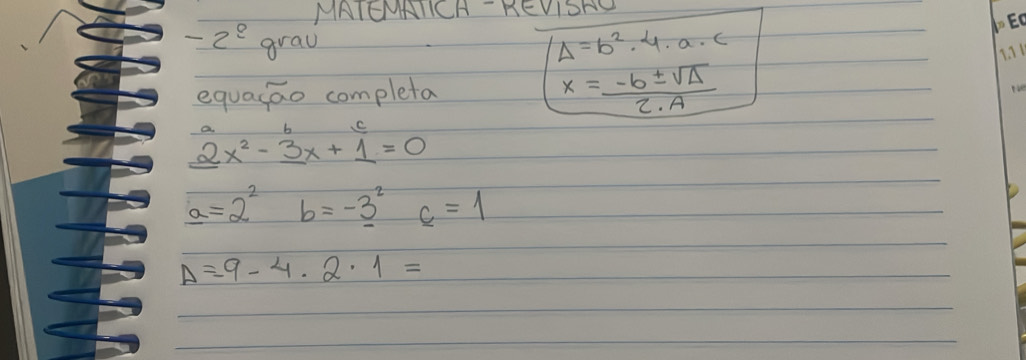 MATEMÁTICA - REVISÃO
- 2º grau
Δ = b² . 4 . a . c
x = -b ± √Δ
2 . A
equação completa
a b c
2x² - 3x + 1 = 0
a = 2² b = -3² c = 1
Δ = 9 - 4 . 2 . 1 =
1.1